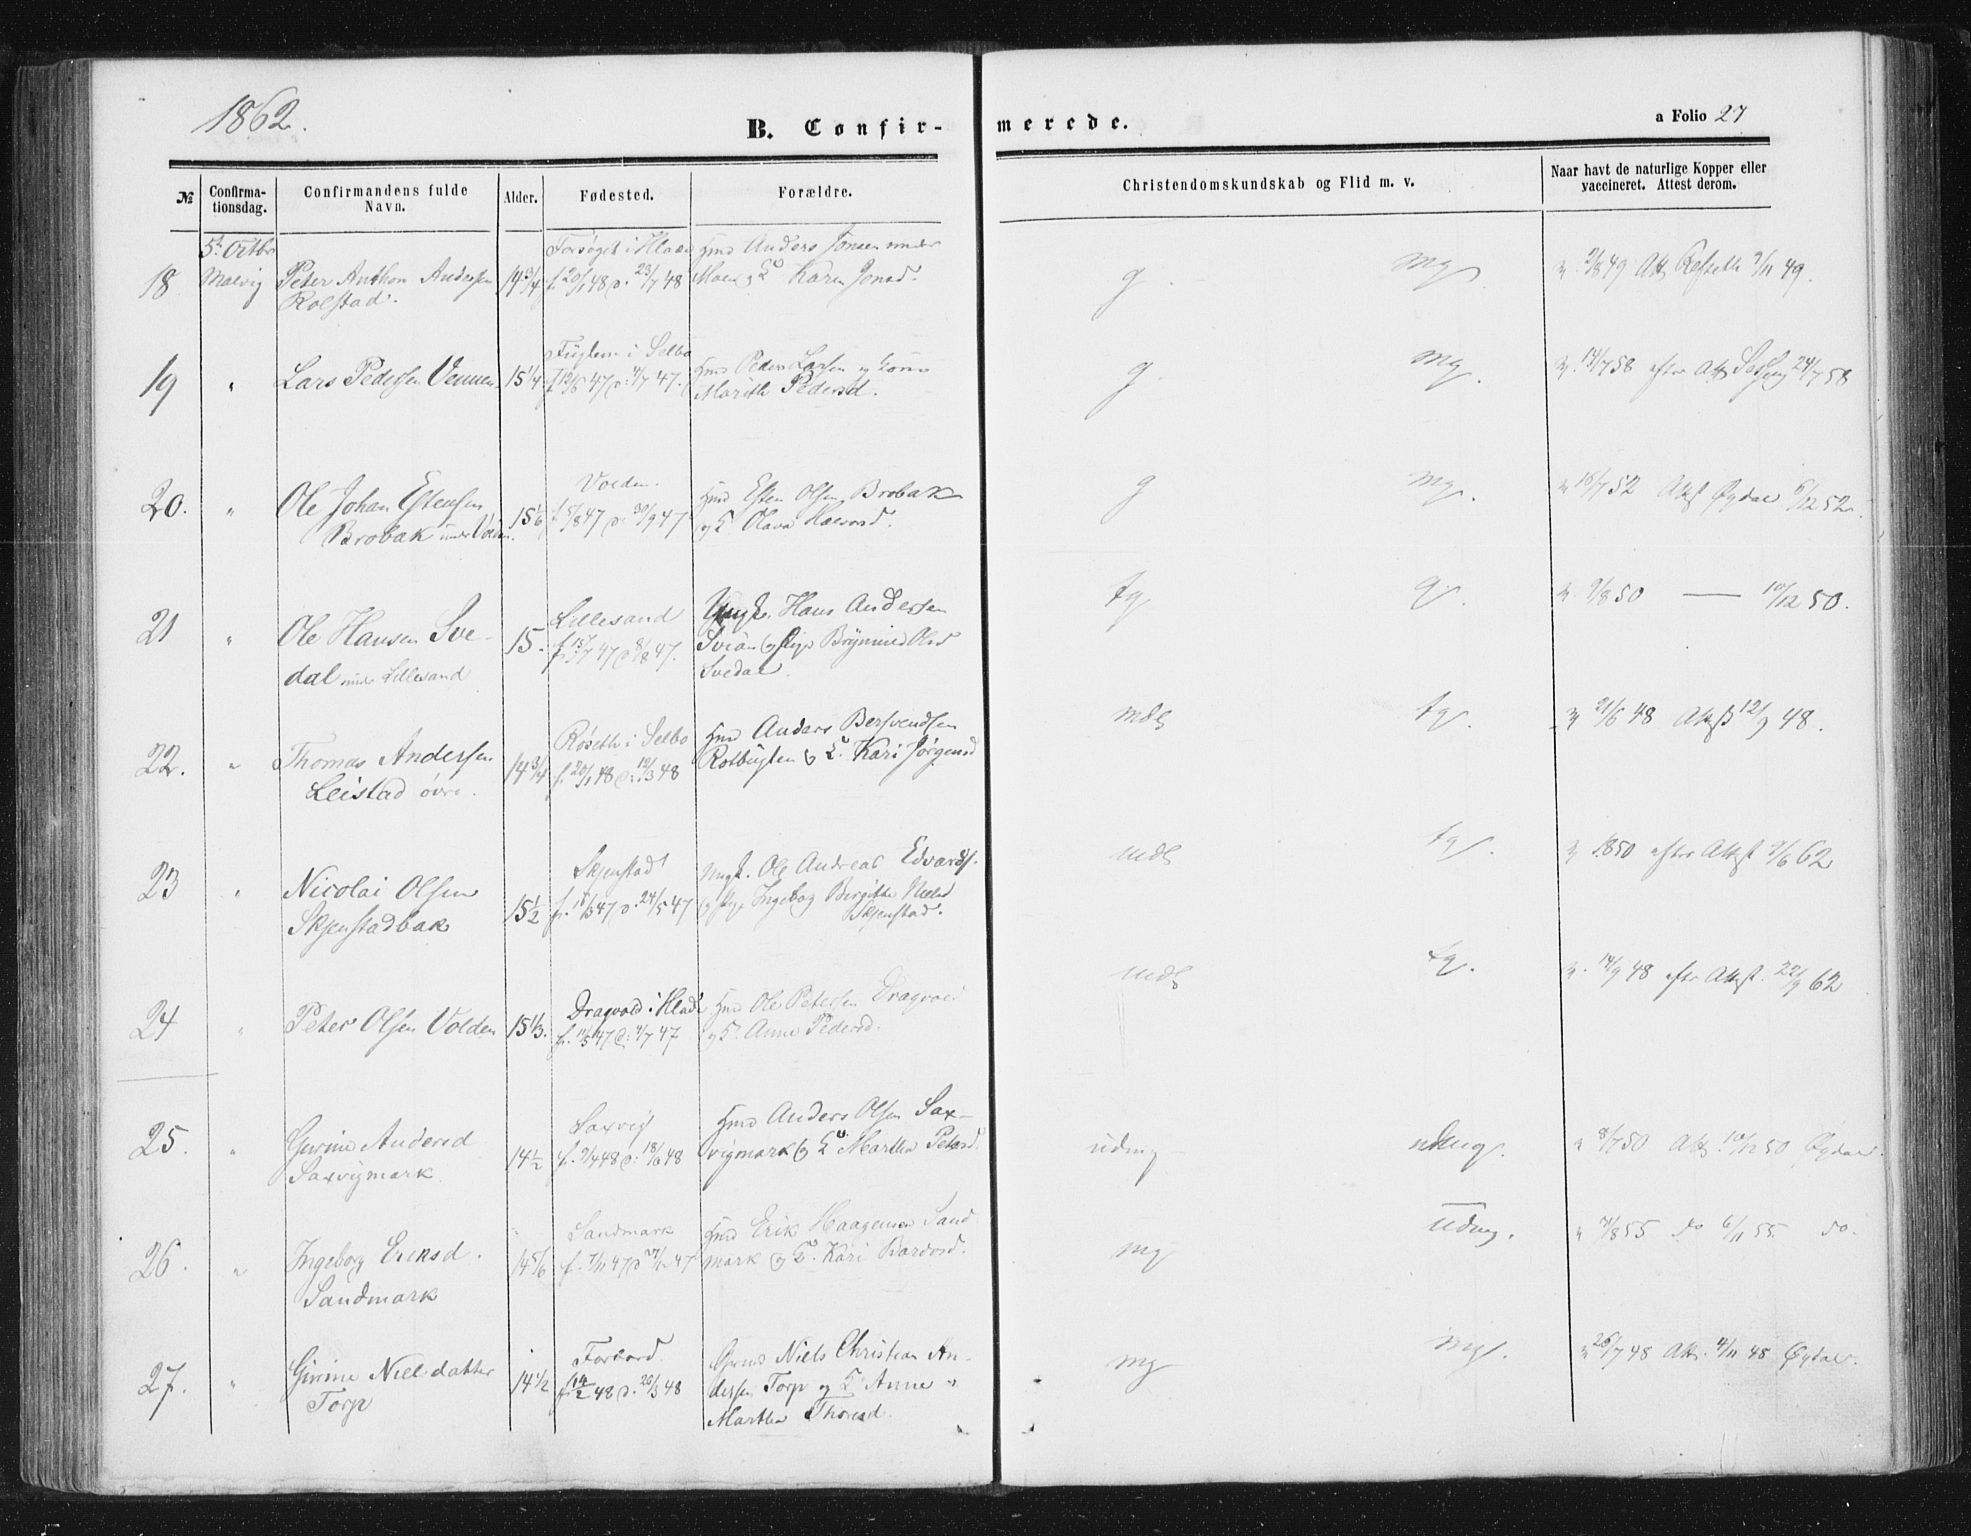 1862.
B. Confir-
merede.
a Folio 27
№
Confirma-
tionsdag.
Confirmandens fulde
Navn.
Alder.
Fødested.
Forældre.
Christendomskundskab og Flid m. v.
Naar havt de naturlige Kopper eller
vaccineret. Attest derom.
18
5t Octbr
Malvig
Peter Anthon Andersen
Rolstad.
14 3/4
f. 20/1 48 d. 23/7 48
Hmd Anders Jonsen under
Karin Jonsd.
g.
mg
49 Att. 49.
19
"
Lars Pedersen Vennen
15 1/4
Fuglem i Selbo
47 d. 4/7 47.
Hmd Peder Larsen og Kone
Marith Pedersd.
g
mg.
v. 14/7 58 efter Att. 24/7 58
20.
"
Ole Johan Estensen
Brobak under Volden.
15 1/6
Volden.
f. 5/8 47 d. 30/9 47
Hmd Esten Olsen Brobak
og K Olava
g
mg.
v 16/7 52 Attst Øydal 6/12 52.
21
"
Ole Hansen Sve-
dal under Lillesand
15.
Lillesand
f. 15/7 47 d 8/8 47.
Ungk. Hans Andersen
og Pige Olsd
Svedal.
tg
g.
v. 9/8 50 — 10/12 50.
22.
"
Thomas Andersen
Leistad övre.
14 3/4
Røseth i Selbo
f. 20/1 48 d. 12/3 48
Hmd Anders Bersvendsen
og K. Kari Jørgensd
mdl
tg.
v 21/6 48 Attst 12/9 48.
23
"
Nicolai Olsen
Skjenstadbak
15 1/2
Skjenstad
47 d. 24/5 47
Ungk. Ole Andreas Edvards.
og Pige Ingebog Birgitte Nielsd
Skjenstad.
mdl
tg.
v 1850 efter Attst 62
24
"
Peter Olsen Volden
15 1/3.
Dragvold i Hlade
47 d. 4/7 47
Hmd Ole Petersen Dragvold
og K. Anne Pedersd.
mdl
tg.
v. 14/9 48 efter Attst. 22/9 62
25.
"
Andersd
Saxvigmark
14 1/2
Saxvig
48 d. 18/6 48
Hmd Anders Olsen Sax-
vigmark og K Martha Petersd.
udmg
udmg.
v 8/7 50 Att. 10/12 50 Øydal.
26.
"
Ingebog Eriksd.
Sandmark
14 5/6
Sandmark
f. 7/11 47 d 47
Hmd Erik Haagensen Sand
mark og K. Kari Bardosd.
mg
udmg.
55 do 6/11 55 do.
27.
"
Nielsdatter
Torp
14 1/2
Forbord.
f. 14/2 48 d. 20/3 48
Niels Christian An-
dersen Torp og K Anne
Martha Thoresd.
mg
mg.
v 26/7 48 Att. 4/11 48 Øydal.